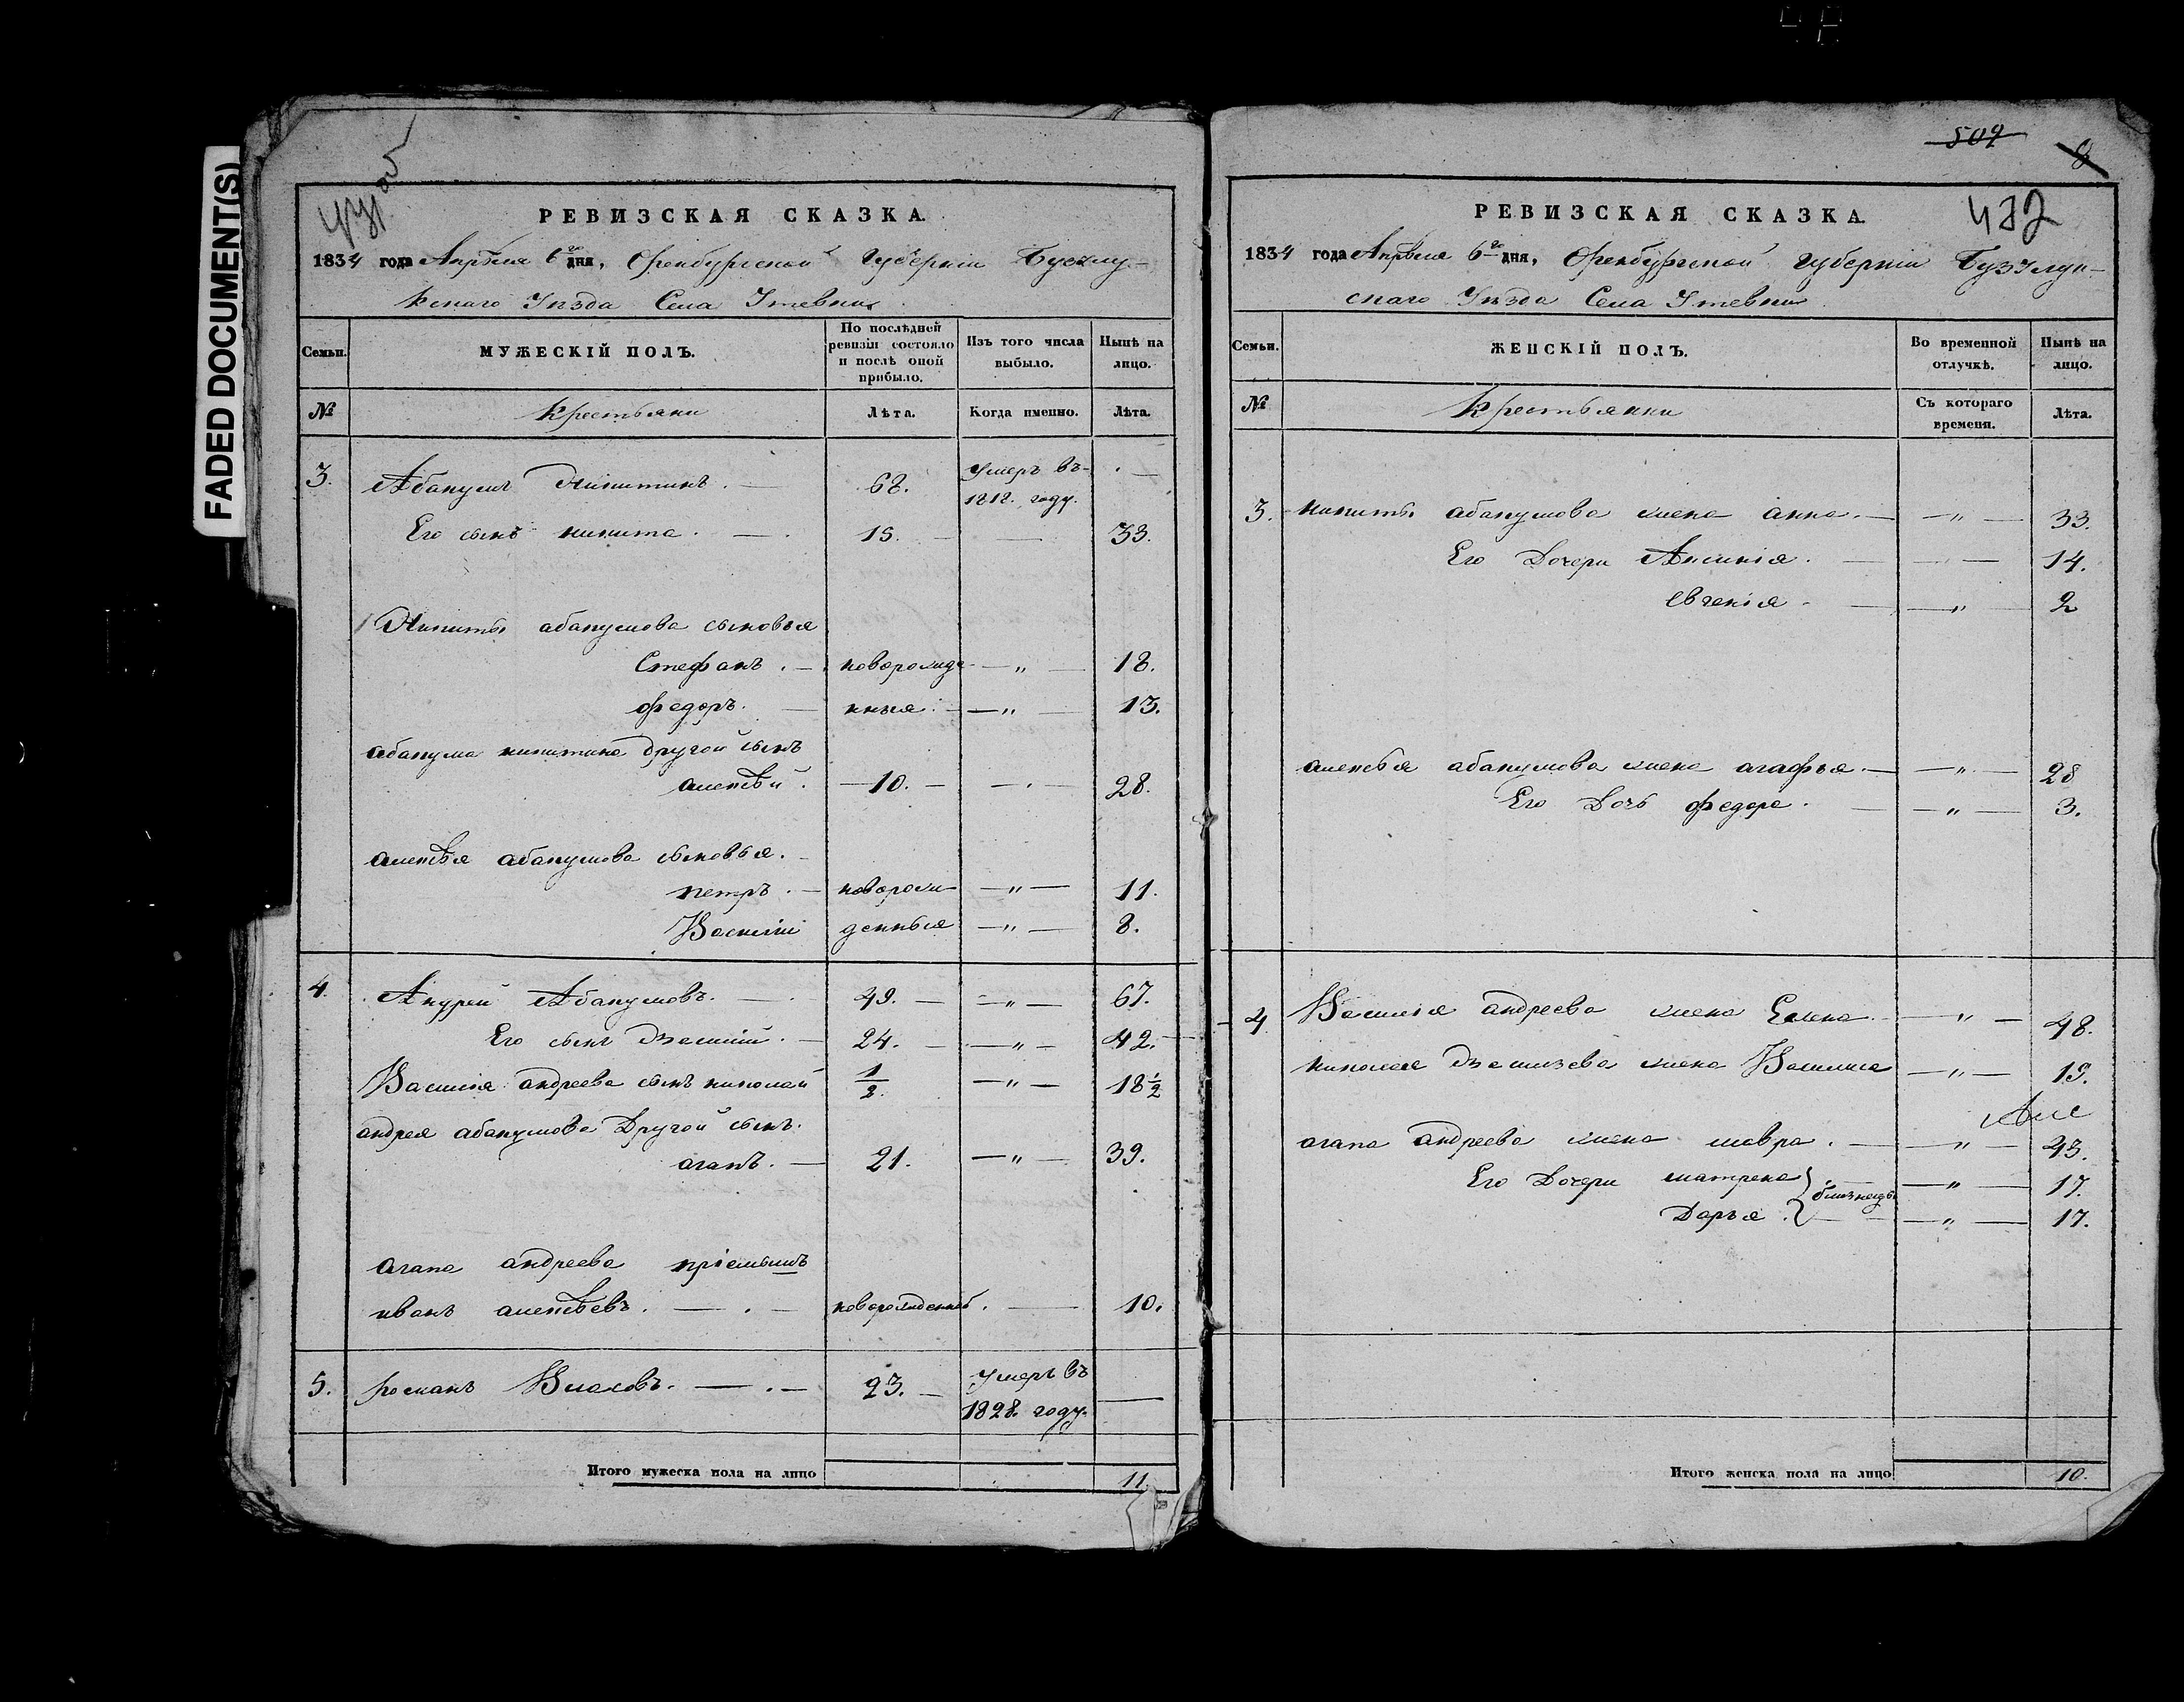 FADED DOCUMENT(S)
431 об
РЕВИЗСКАЯ СКАЗКА
1834 года Апрѣля 6го дня, Оренбургской Губерніи Бузулу-
кскаго Уѣзда Села Утевки
Семьи.
МУЖЕСКІЙ ПОЛЪ.
По послѣдней
ревизіи состояло
и послѣ оной
прибыло.
Изъ того числа
выбыло.
Нынѣ на
лицо.
№
Крестьяни
Лѣта.
Когда именно.
Лѣта.
3. Абакумъ Никитинъ. — 68. Умеръ въ
1818. году. —
Его сынъ никита. — 15. — 33.
Никиты абакумова сыновья
Стефанъ. — новорожде — „ — 18.
федоръ. — нныя. — „ — 13.
абакума никитина другой сынъ
алексѣй. — 10. — 28.
алексѣя абакумова сыновья.
петръ. — новорож — „ — 11.
Василій денныя — „ — 8.
4. Андрей Абакумовъ. — 49. — „ — 67.
Его сынъ Василій. — 24. — „ — 42.
Василія андреева сынъ николай 1/2. — „ — 18 1/2
андрея абакумова Другой сынъ.
агапъ. — 21. — „ — 39.
агапа андреева пріемышъ
иванъ алексѣевъ. — новорожденный. — 10.
5. романъ Власовъ. — 23. — Умеръ въ
1828. году. —
Итого мужеска пола на лицо 11.
509
8
432
РЕВИЗСКАЯ СКАЗКА
1834 года Апрѣля 6го дня, Оренбургской Губерніи Бузулук-
скаго Уѣзда Села Утевки
Семьи.
ЖЕНСКІЙ ПОЛЪ.
Во временной
отлучкѣ.
Нынѣ на
лицо.
№
Крестьянки
Съ котораго
времени.
Лѣта.
3. никиты абакумова жена анна. — „ — 33.
Его Дочери Аксинія. — 14.
евгенія. — „ — 2
алексѣя абакумова жена агафья. — „ — 28
Его Дочь федора. — „ — 3.
4. Василія андреева жена Елена. — „ — 48.
николая Васильева жена Василиса — „ — 19.
агапа андреева жена мавра. — „ — 43.
Его Дочери матрена } близнецы — „ — 17.
Дарья. — „ — 17.
Итого женска пола на лицо 10.